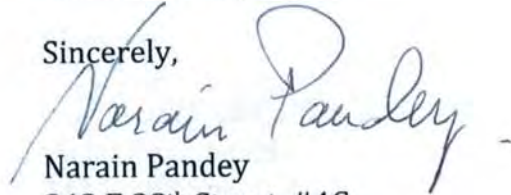 Sincerely,
Narain Pandey
Narain Pandey